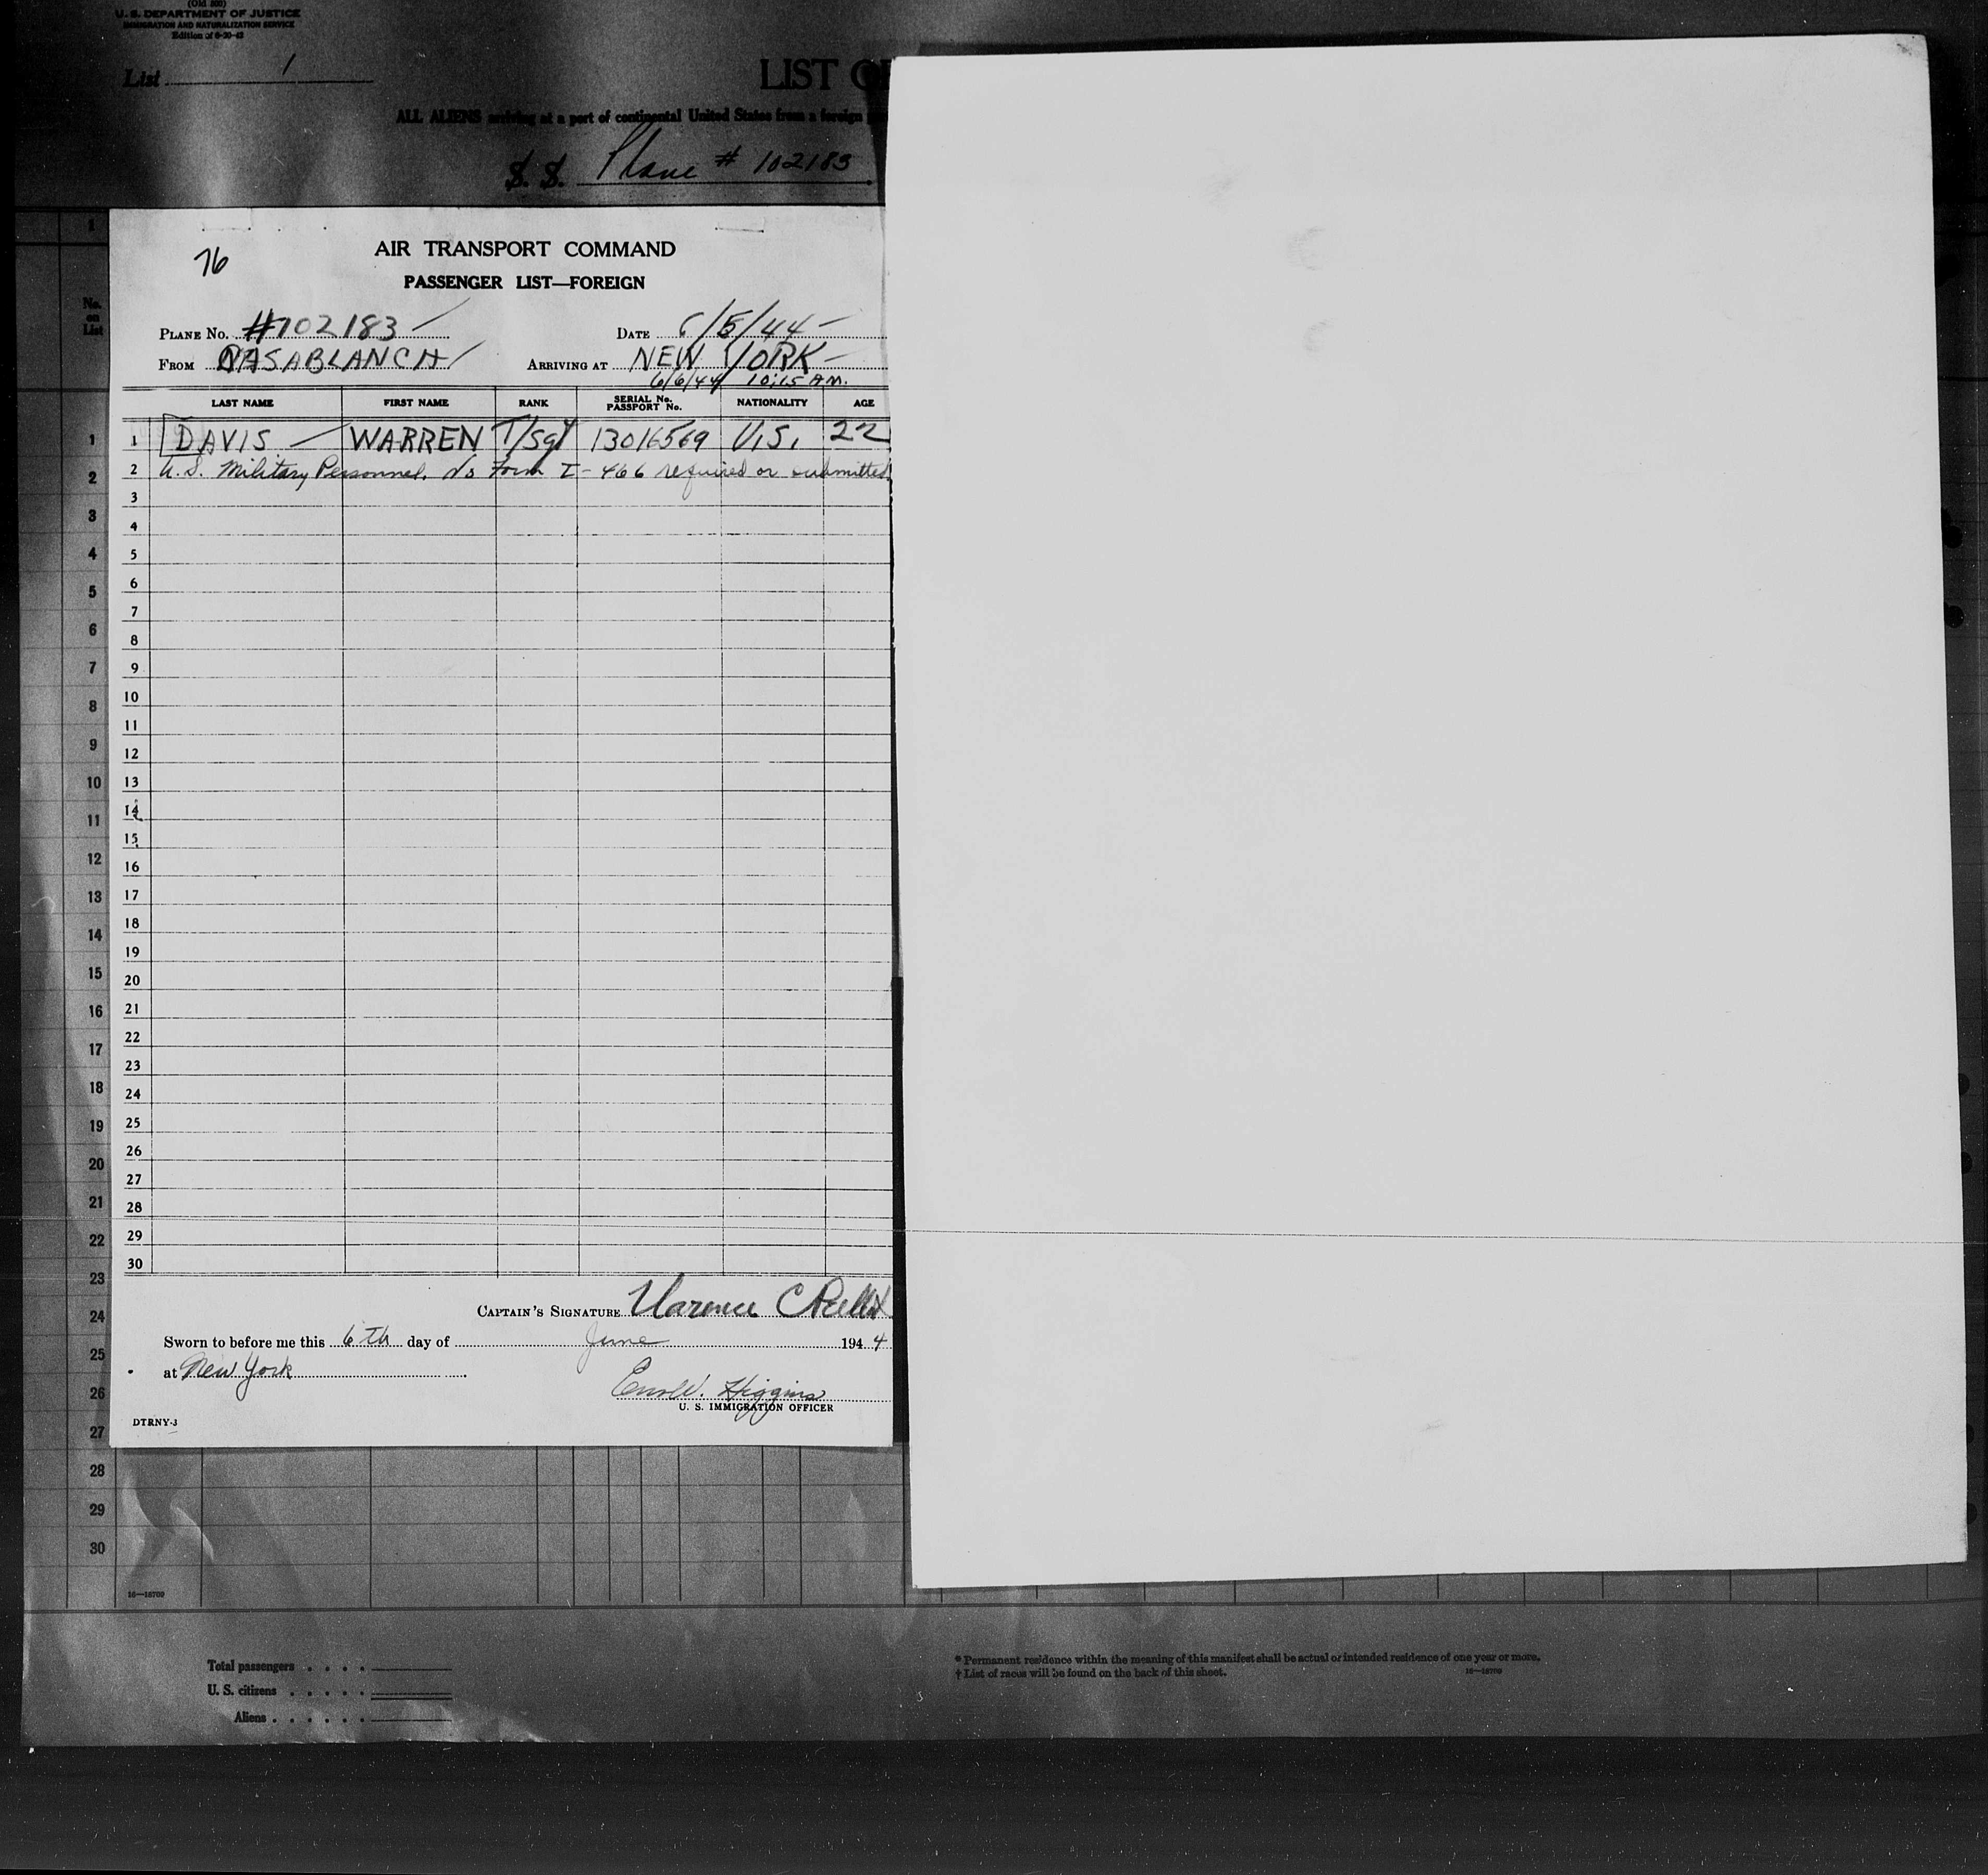 (Old 500)
U. S. DEPARTMENT OF JUSTICE
IMMIGRATION AND NATURALIZATION SERVICE
Edition of 6-30-43
List 1
LIST OF
ALL ALIENS arriving at a port of continental United States from a foreign
S. S. Plane # 102183
76
AIR TRANSPORT COMMAND
PASSENGER LIST—FOREIGN
PLANE No. #102183 DATE 6/5/44
FROM CASABLANCA ARRIVING AT NEW YORK
6/6/44 10:15 A.M.
LAST NAME FIRST NAME RANK SERIAL No. PASSPORT No. NATIONALITY AGE
1 DAVIS — WARREN T/Sgt 13016569 U.S. 22
2 U.S. Military Personnel. No Form I-466 required or submitted.
3
4
5
6
7
8
9
10
11
12
13
14
15
16
17
18
19
20
21
22
23
24
25
26
27
28
29
30
CAPTAIN'S SIGNATURE Clarence C
Sworn to before me this 6th day of June 1944
at New York
Higgins
U. S. IMMIGRATION OFFICER
DTRNY-3
No. on List
1
1
2
3
4
5
6
7
8
9
10
11
12
13
14
15
16
17
18
19
20
21
22
23
24
25
26
27
28
29
30
16—18709
Total passengers . . . .
U. S. citizens . . . . .
Aliens . . . . . .
* Permanent residence within the meaning of this manifest shall be actual or intended residence of one year or more.
† List of races will be found on the back of this sheet. 16—18709